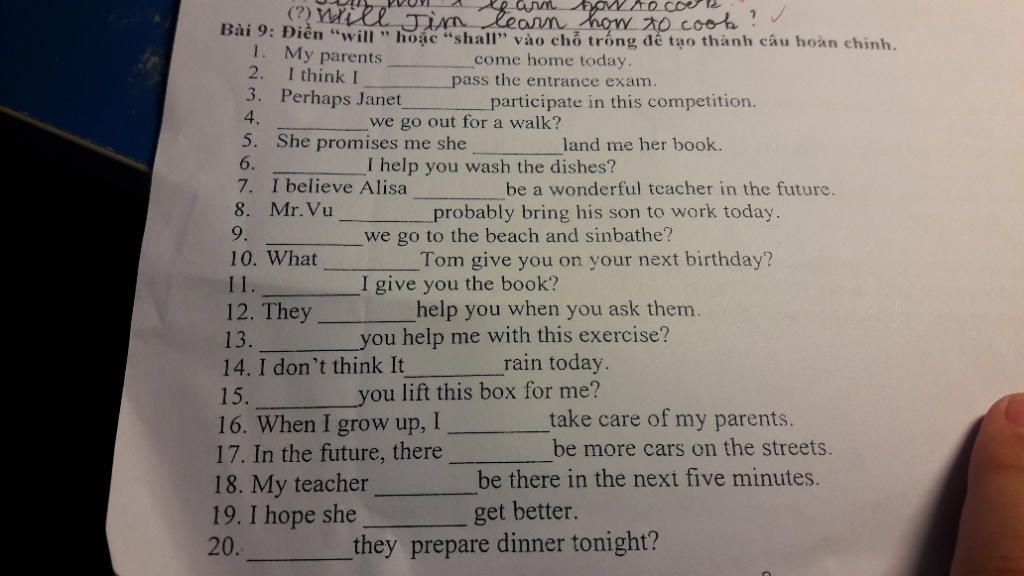 learn how to cook
(?) Will Jim learn how to cook ?
Bài 9: Điền “will ” hoặc “shall” vào chỗ trống để tạo thành câu hoàn chỉnh.
1. My parents _________come home today.
2. I think I _________pass the entrance exam.
3. Perhaps Janet_________participate in this competition.
4. _________we go out for a walk?
5. She promises me she _________land me her book.
6. _________I help you wash the dishes?
7. I believe Alisa _________be a wonderful teacher in the future.
8. Mr.Vu _________probably bring his son to work today.
9. _________we go to the beach and sinbathe?
10. What _________Tom give you on your next birthday?
11. _________I give you the book?
12. They _________help you when you ask them.
13. _________you help me with this exercise?
14. I don’t think It_________rain today.
15. _________you lift this box for me?
16. When I grow up, I _________take care of my parents.
17. In the future, there _________be more cars on the streets.
18. My teacher _________be there in the next five minutes.
19. I hope she _________ get better.
20. _________they prepare dinner tonight?